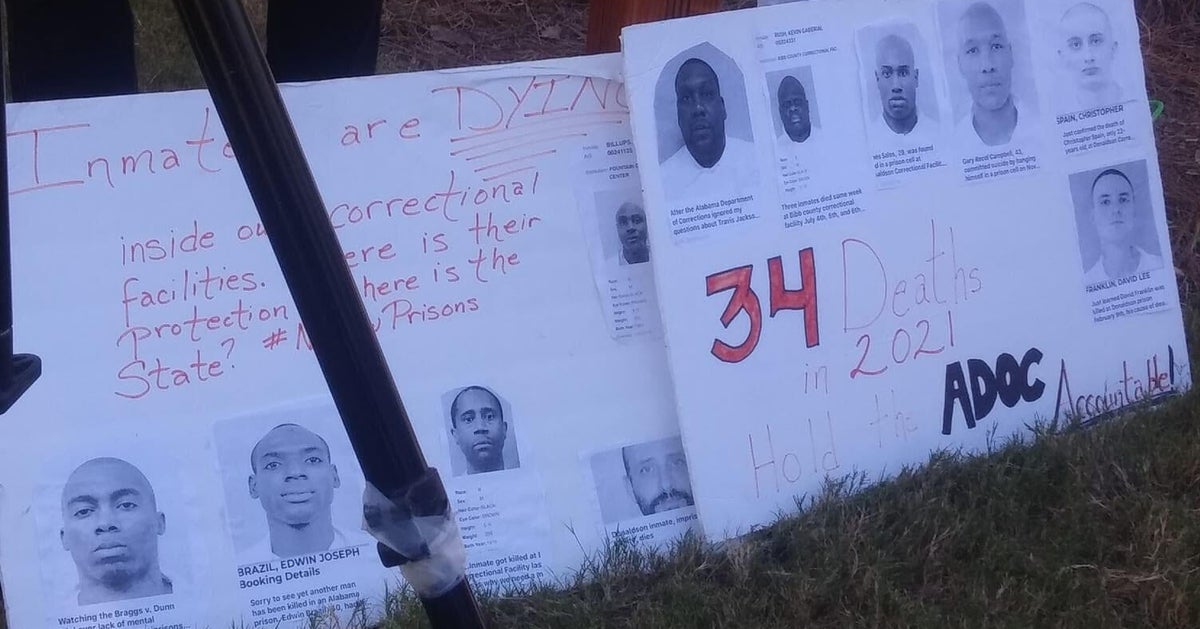 Inmate are DYING
inside correctional
facilities. ere is their
protection here is the
State? # Prisons
BILLUPS,
00241135
FOUNTAIN
CENTER
Watching the Braggs v. Dunn
over lack of mental
prisons...
BRAZIL, EDWIN JOSEPH
Booking Details
Sorry to see yet another man
has been killed in an Alabama
prison, Edwin Brazil, 40, had
Race:
Sex:
Hair Color: BLACK
Eye Color: BROWN
Height:
Weight:
Birth Year:
Inmate got killed at
rectional Facility las
s why we need a m
Donaldson inmate, impris
dies
RUSH, KEVIN GABERIAL
00224331
BIBB COUNTY CORRECTIONAL FAC
After the Alabama Department
of Corrections ignored my
questions about Travis Jackso...
Three inmates died same week
at Bibb county correctional
facility July 4th, 5th, and 6th...
es Sales, 29, was found
d in a prison cell at
aldson Correctional Facilit...
Gary Raoul Campbell, 43,
committed suicide by hanging
himself in a prison cell on Nov...
SPAIN, CHRISTOPHER
Just confirmed the death of
Christopher Spain, only 22-
years old, at Donaldson Corre...
FRANKLIN, DAVID LEE
Just learned David Franklin was
killed at Donaldson prison
February 9th, his cause of dea...
34 Deaths
in 2021
Hold the ADOC Accountable!